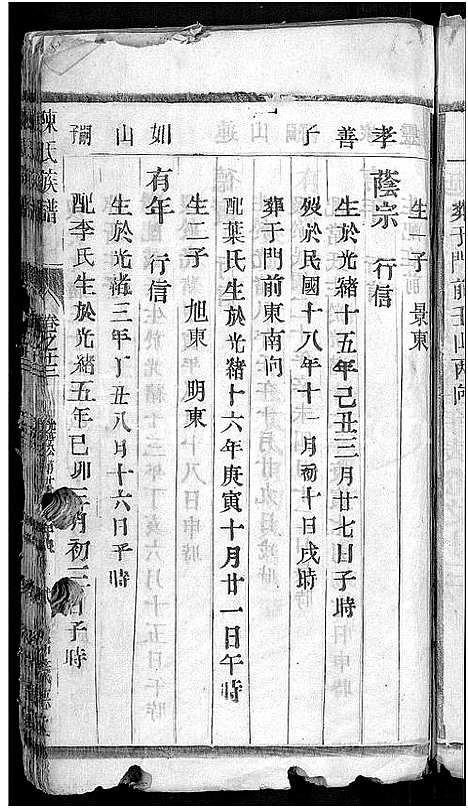 葬于門前玉山丙向
生一子 景東
孝 蔭宗 行信
善 生於光緒十五年己丑三月廿七日子時
子 歿於民國十八年十一月初十日戌時
葬于門前東南向
配葉氏生於光緒十六年庚寅十月廿一日午時
生二子 旭東 明東
如 有年 行信
山 生於光緒三年丁丑八月十六日子時
配李氏生於光緒五年己卯 月初二日子時
陳氏族譜 卷之十三